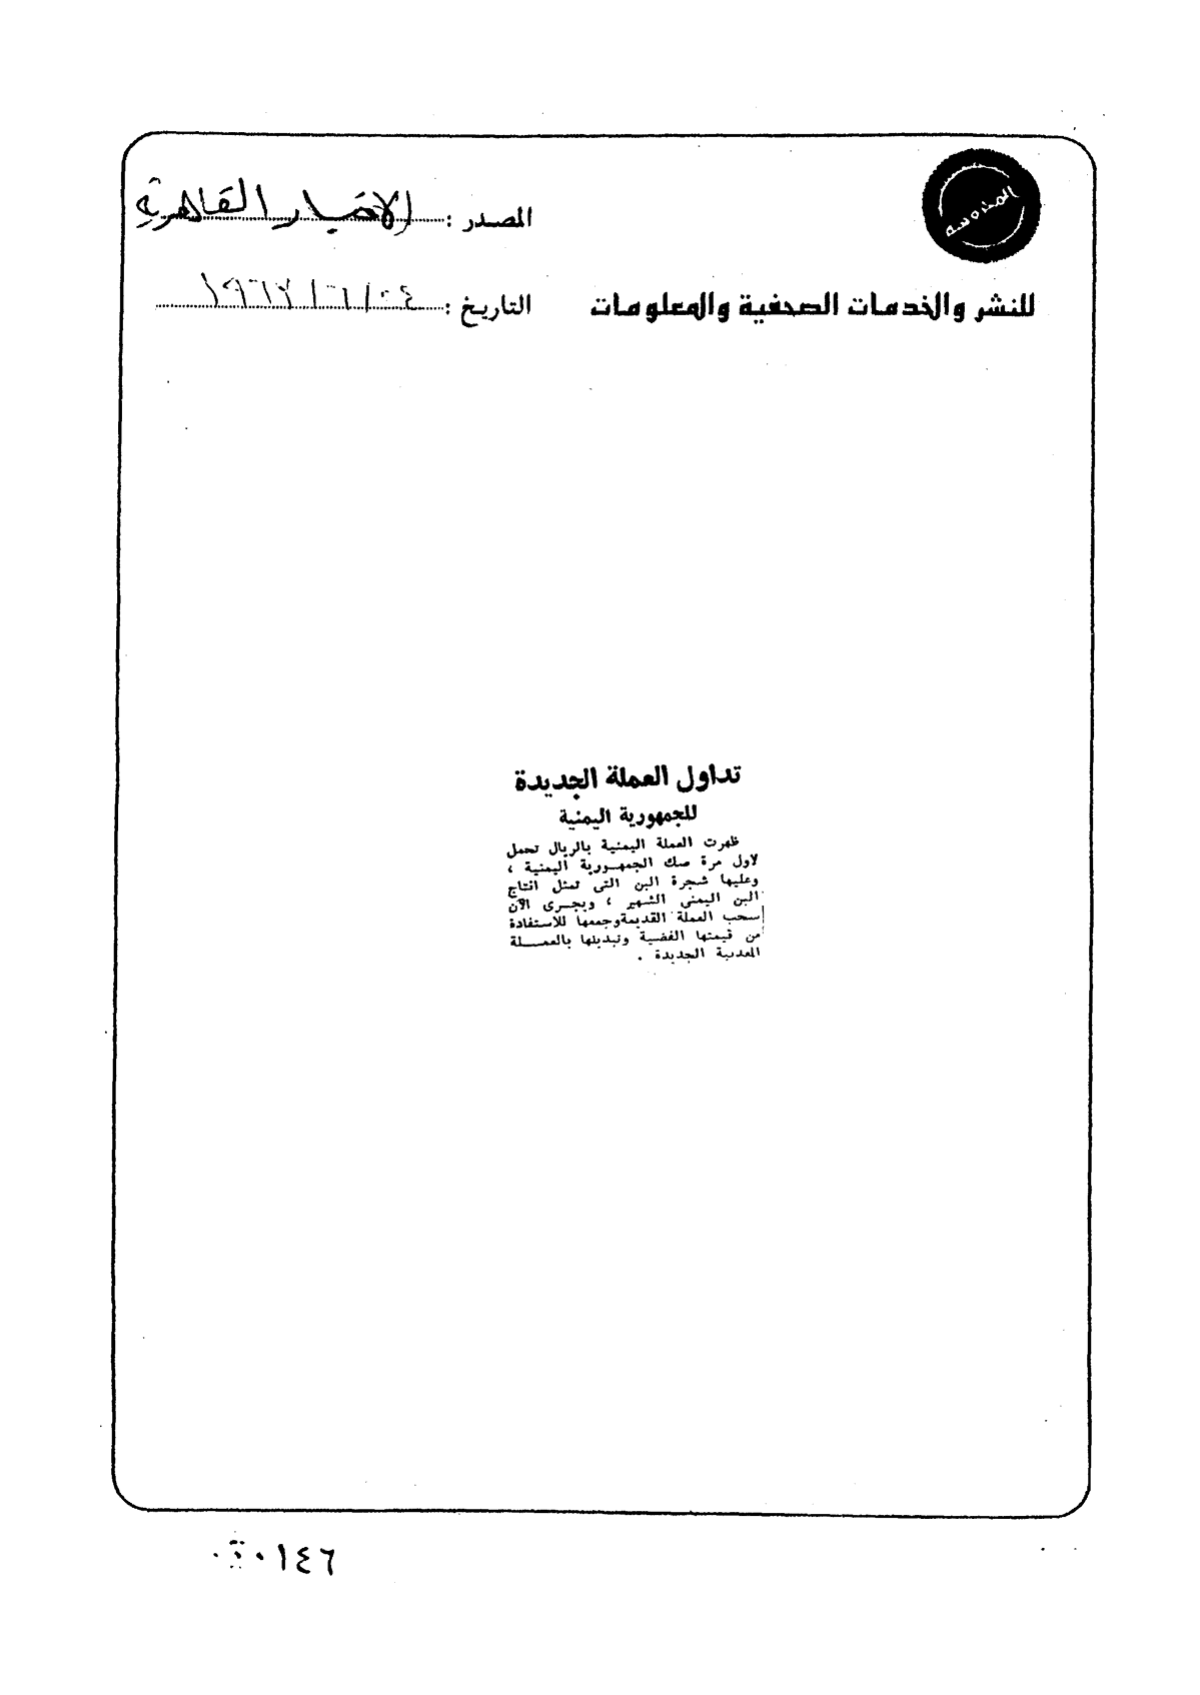 المصدر : الاخبار القاهرية
للنشر والخدمات الصحفية والمعلومات
التاريخ :
تداول العملة الجديدة
للجمهورية اليمنية
ظهرت العملة اليمنية بالريال تحمل
لاول مرة صك الجمهورية اليمنية ،
وعليها شجرة البن التى تمثل انتاج
البن اليمنى الشهير ، ويجرى الآن
سحب العملة القديمة وجمعها للاستفادة
من قيمتها الفضية وتبديلها بالعملة
المعدنية الجديدة .